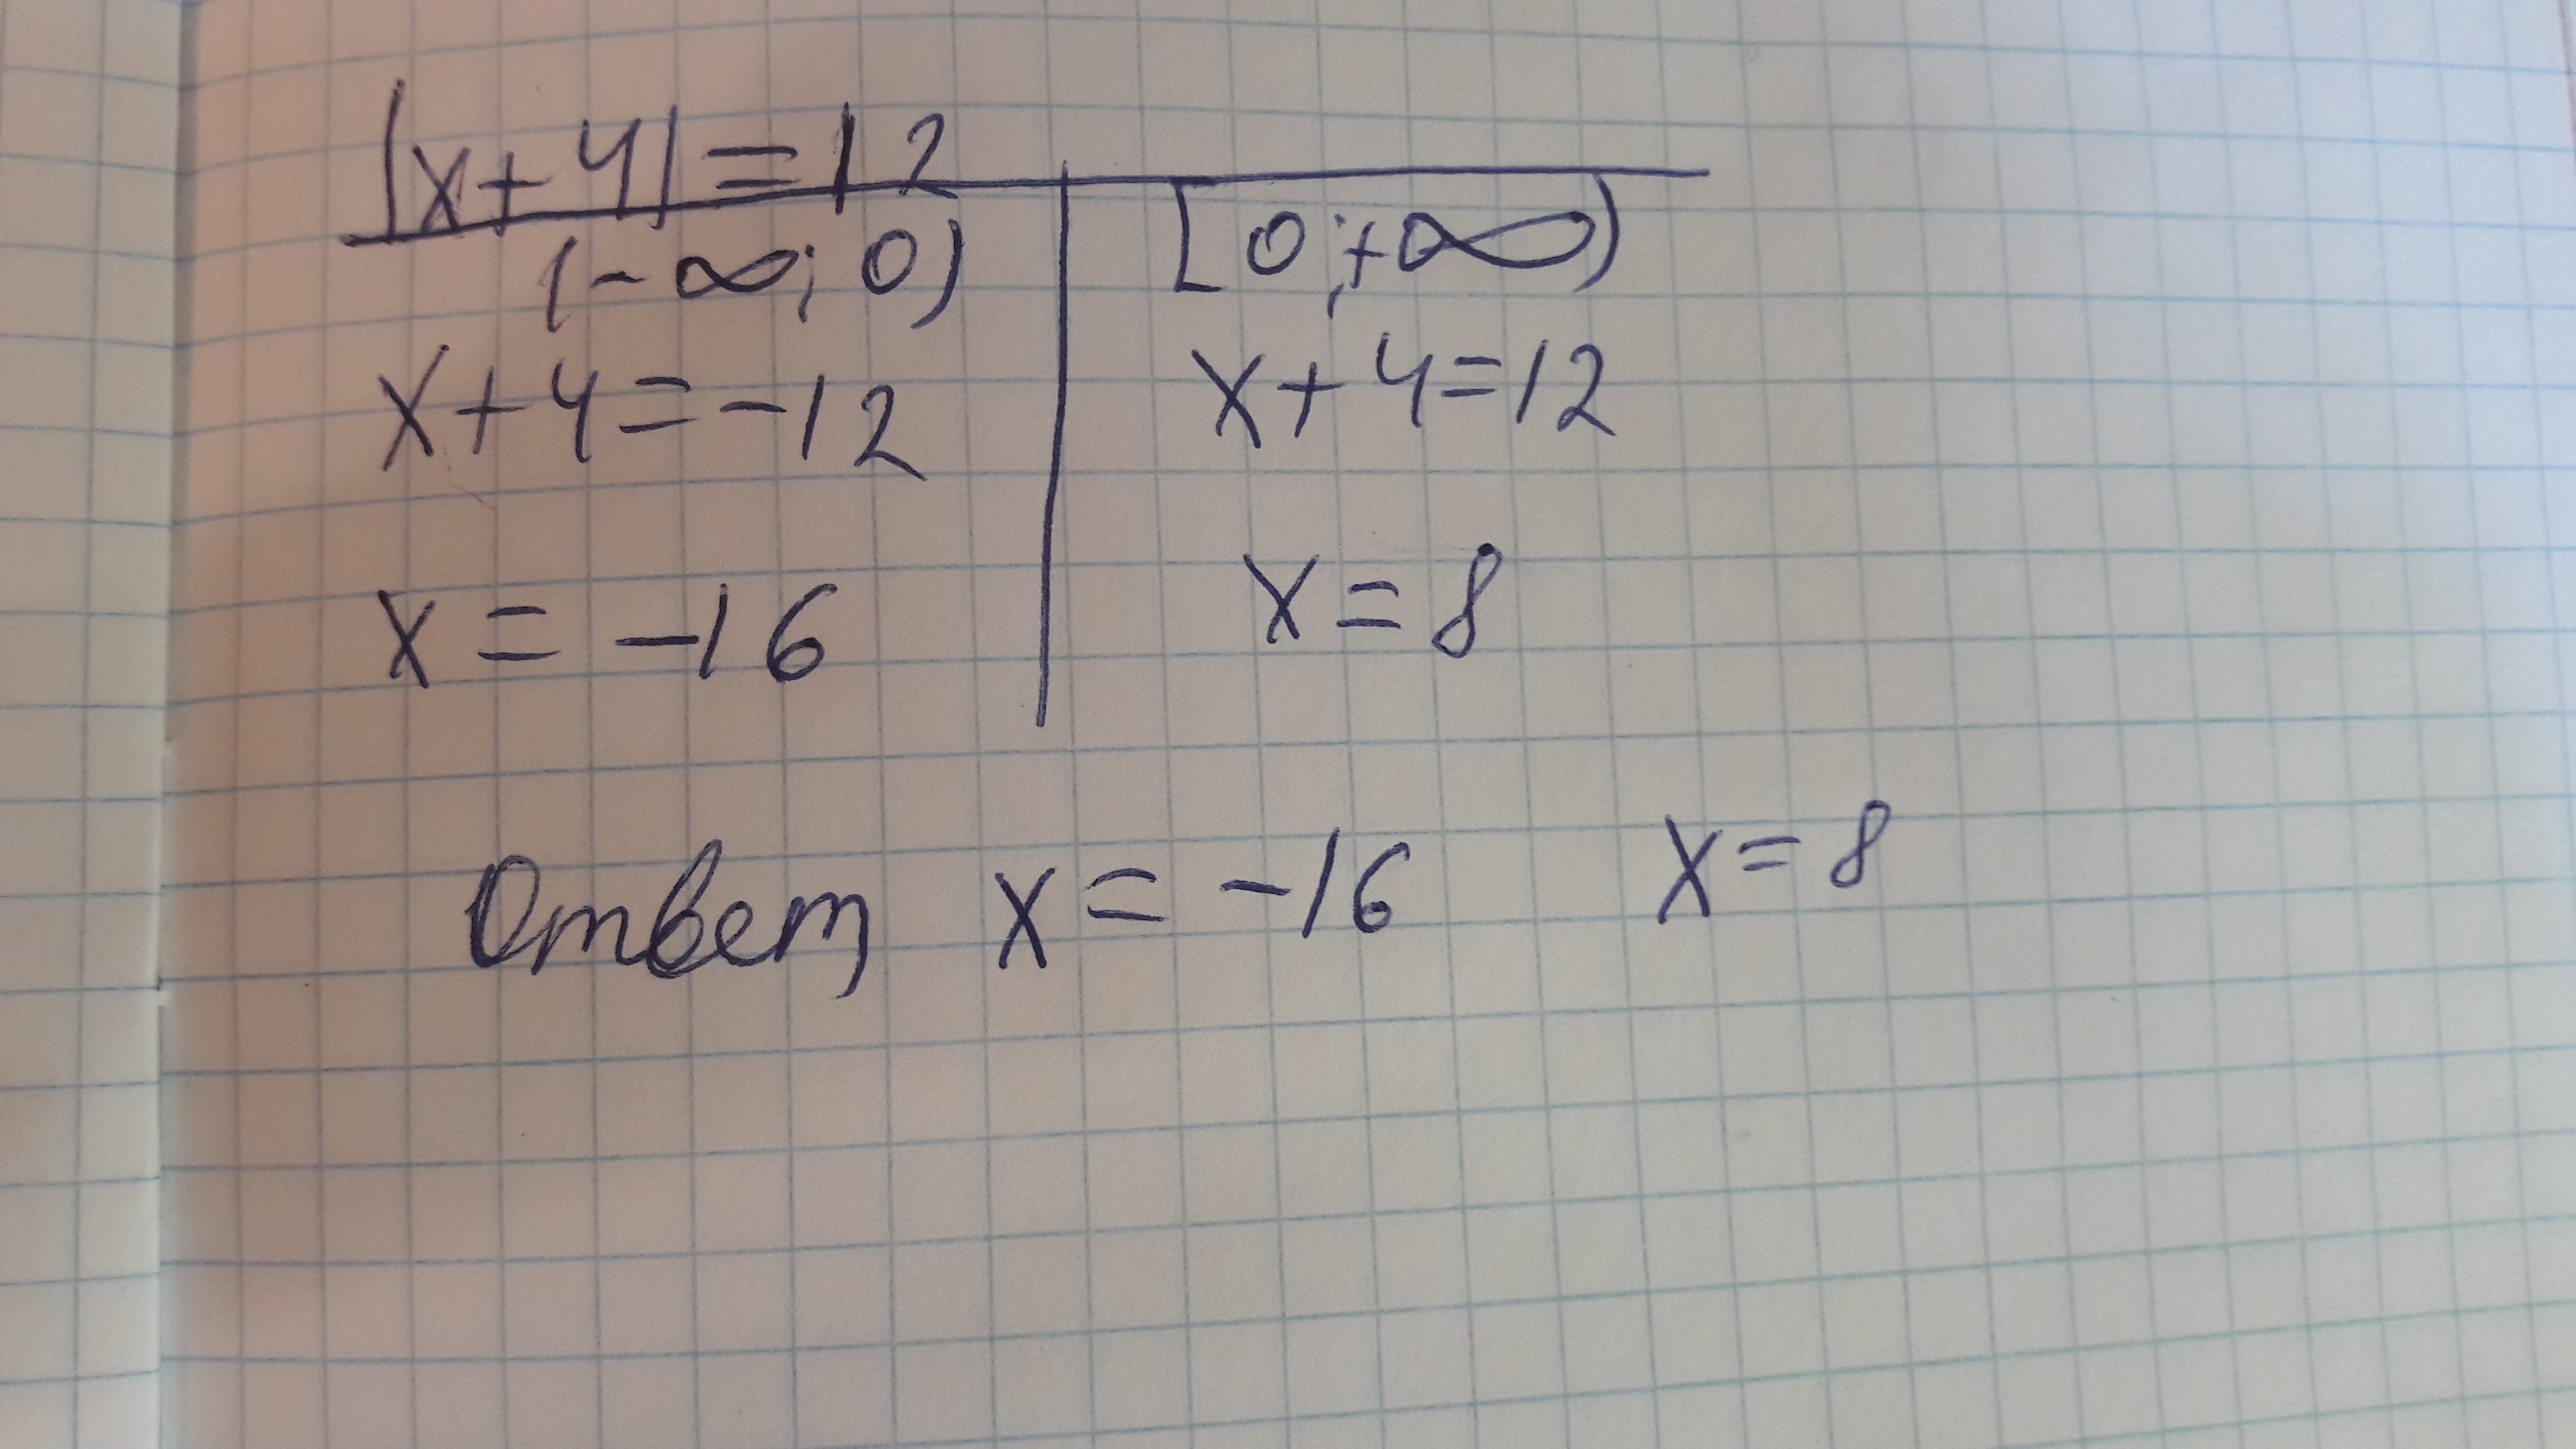 |x+4|=12
(-∞; 0) [0;+∞)
x+4=-12 x+4=12
x=-16 x=8
Ответ x=-16 x=8